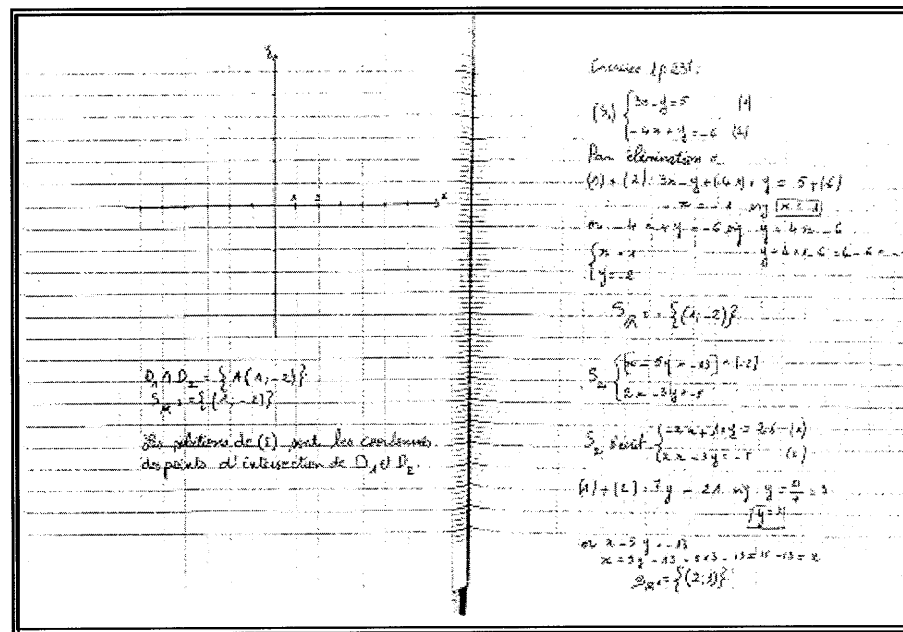 y
1 2 x
D₁ ∩ D₂ = {A(1; -2)}
S_ℝ² = {(1; -2)}
Les solutions de (S) sont les coordonnées
des points d'intersection de D₁ et D₂.
Exercice 1p231:
(S₁) { 3x - y = 5 (1)
{ -4x + y = -6 (2)
Par élimination
(1) + (2): 3x - y + (-4x) + y = 5 + (-6)
-x = -1 x = 1
or -4x + y = -6 y = 4x - 6
{ x = 1 y = 4×1 - 6 = 4 - 6 =
{ y = -2
S_ℝ² = {(1; -2)}
S₂ { [x - 5y = -13] × (-2)
{ 2x - 3y = -5
S₂ s'écrit { -2x + 10y = 26 (1)
{ 2x - 3y = -5 (2)
(1) + (2): 7y = 21 y = 21/7 = 3
y = 3
or x - 5y = -13
x = 5y - 13 = 5×3 - 13 = 15 - 13 = 2
S_ℝ² = {(2; 3)}